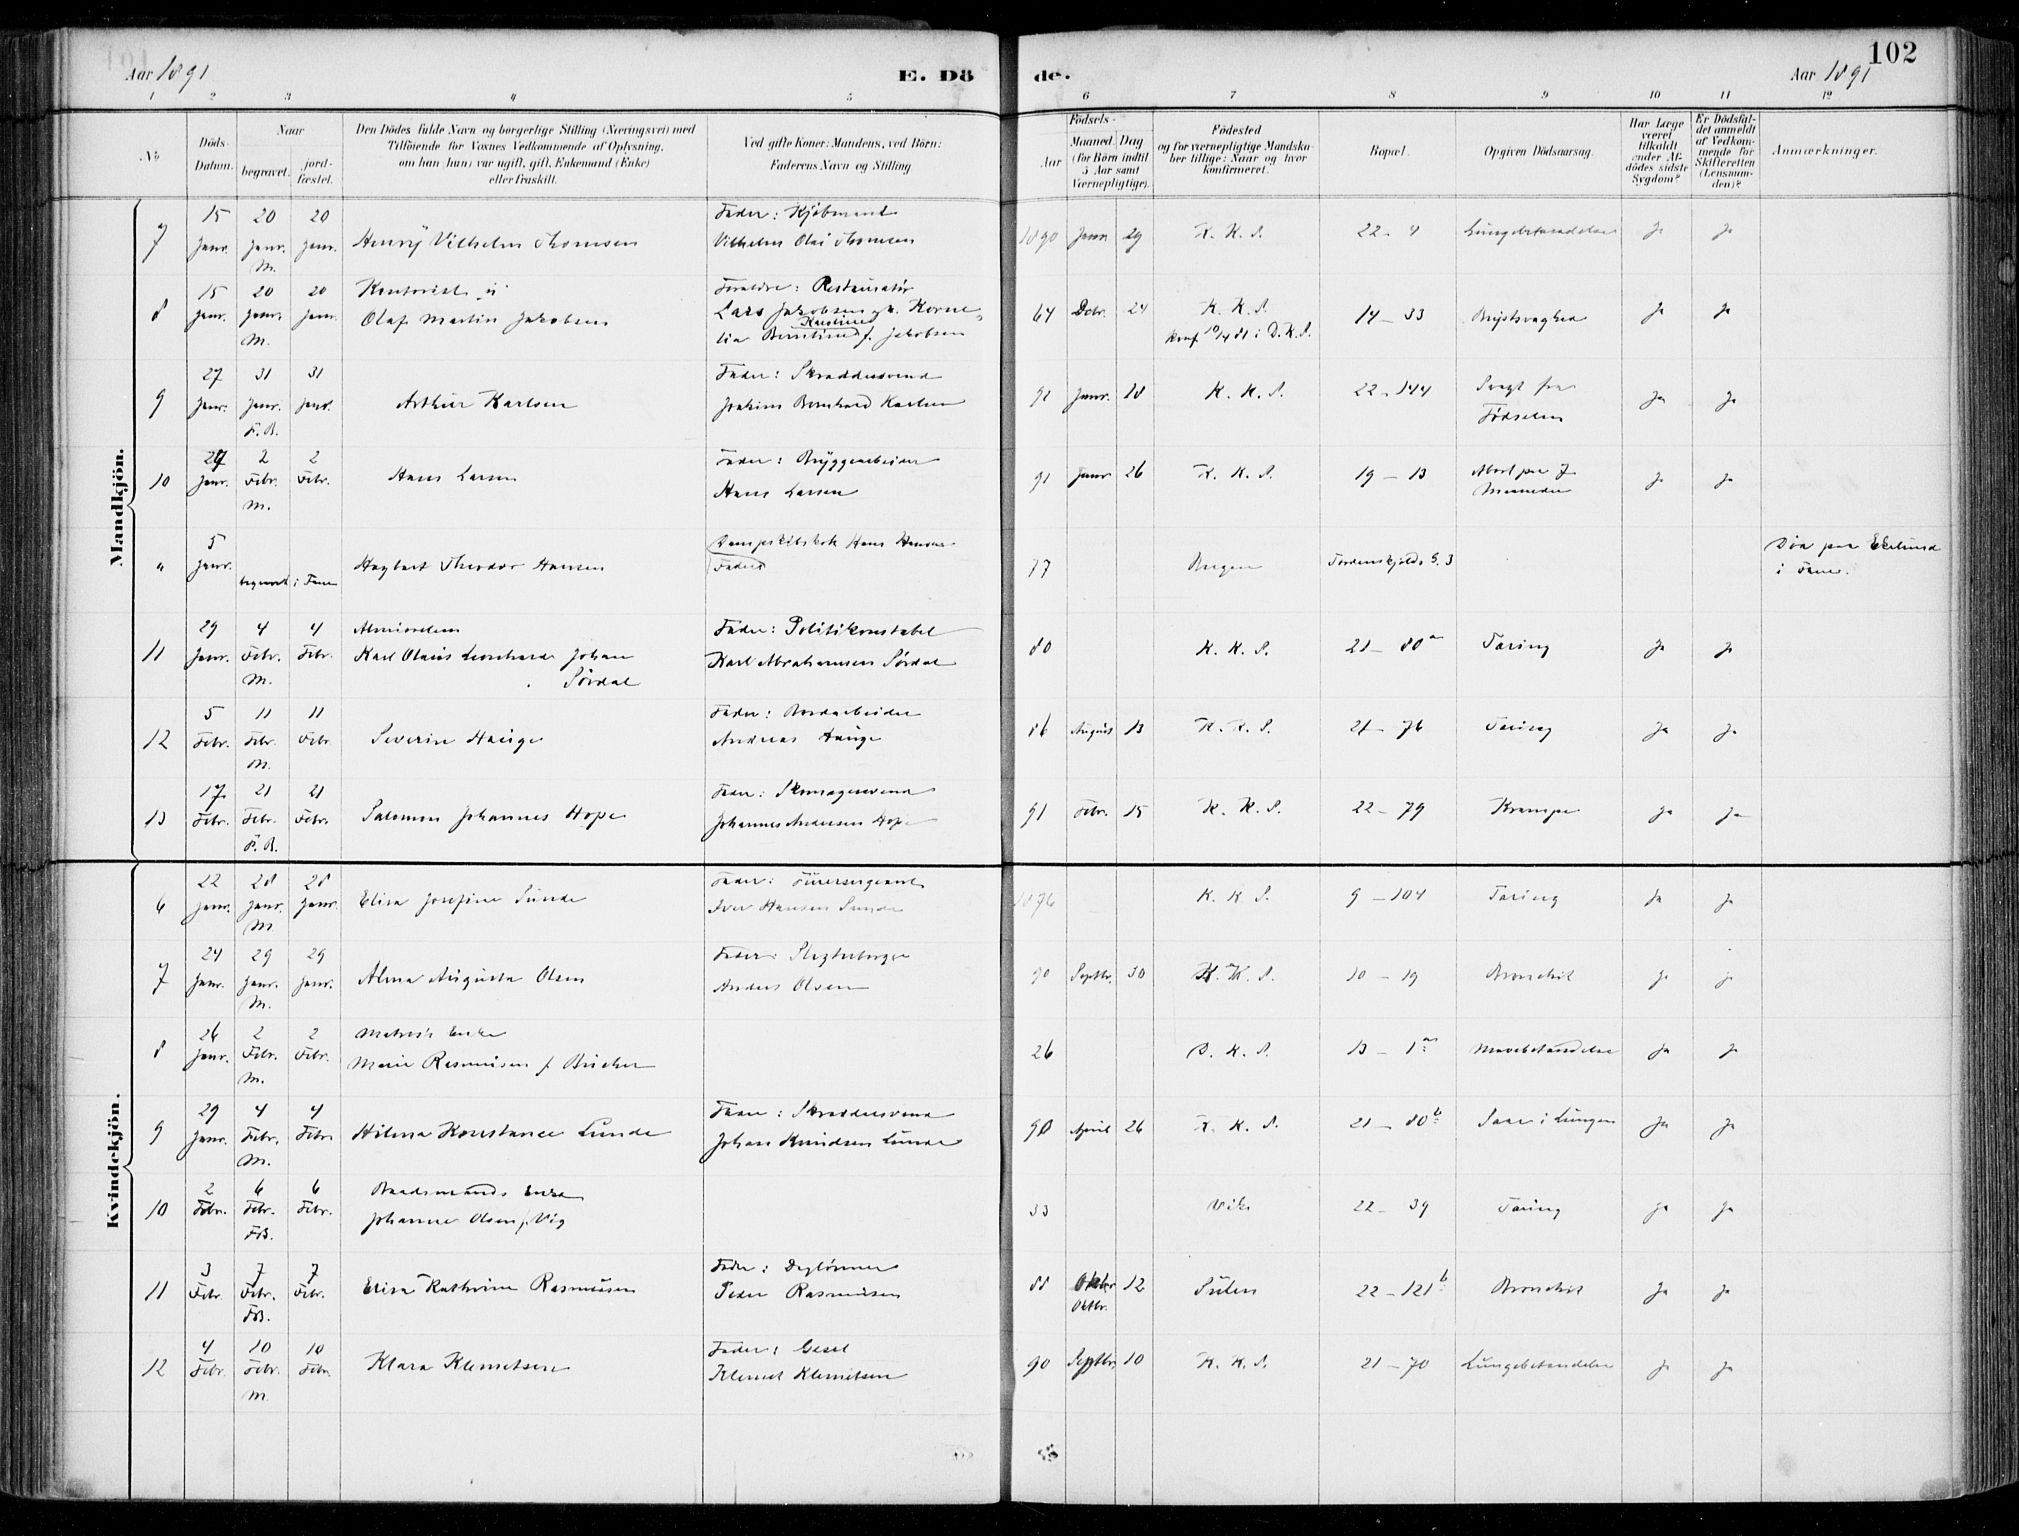 102
Aar 1891
E. Dö
de.
Aar 1891
1 2 3 4 5 6 7 8 9 10 11 12
No
Döds-
Datum.
Naar
begravet.
jord-
fæstet.
Den Dödes fulde Navn og borgerlige Stilling (Næringsvei) med
Tilföiende for Voxnes Vedkommende af Oplysning,
om han (hun) var ugift, gift, Enkemand (Enke)
eller fraskilt.
Ved gifte Koner: Mandens, ved Börn:
Faderens Navn og Stilling.
Födsels-
Aar
Maaned
(for Börn indtil
5 Aar samt
Værnepligtige).
Dag
Födested
og for værnepligtige Mandska-
ber tillige: Naar og hvor
konfirmeret.
Bopæl.
Opgiven Dödsaarsag.
Har Læge
været
tilkaldt
under Af-
dödes sidste
Sygdom?
Er Dödsfal-
det anmeldt
af Vedkom-
mende for
Skifteretten
(Lensman-
den)?
Anmærkninger.
Mandkjön.
7 15 Janr. 20 Janr. M. 20 Janr. Henry Vilhelm Thomsen Fader: Kjøbmand
Vilhelm Olai Thomsen 1890 Janr 29 K. K. S. 22 - 4 Lungebetændelse Ja Ja
8 15 Janr. 20 Janr. M. 20 Janr. Kontorist
Olaf Martin Jakobsen Forældre: Restauratør
Lars Jakobsen og h. Korne-
lia Berntine Karoline f. Jakobsen 64 Decbr. 24 K. K. S.
konf 10/4 81 i D. K. S. 14 - 33 Brystsvaghed Ja Ja
9 27 Janr. 31 Janr. F. B. 31 Janr. Arthur Karlsen Fader: Skræddersvend
Joakim Bernhard Karlsen 91 Janr. 18 K. K. S. 22 - 144 Svagt fra
Fødselen Ja Ja
10 27 Janr. 2 Febr. M. 2 Febr. Hans Larsen Fader: Bryggearbeider
Hans Larsen 91 Janr 26 K. K. S. 19 - 13 Abort paa 7
Maaneder Ja Ja
" 5 Janr. begravet i Fane Hagbart Theodor Hansen Dampskibskok Hans Hansen
Fader 77 Bergen Tordenskjolds G. 3 Død paa Ekelund
i Fane.
11 29 Janr. 4 Febr. M. 4 Febr. Almisselem
Karl Olaus Leonhard Johan
Sørdal Fader: Politikonstabel
Karl Abrahamsen Sørdal 80 K. K. S. 21 - 80 a Tæring Ja Ja
12 5 Febr. 11 Febr. M. 11 Febr. Severin Hauge Fader: Bordarbeider
Andreas Hauge 86 August 13 K. K. S. 21 - 76 Tæring Ja Ja
13 17 Febr. 21 Febr. F. B. 21 Febr. Salomon Johannes Hope Fader: Skomagersvend
Johannes Andersen Hope 91 Febr. 15 K. K. S. 22 - 79 Krampe Ja Ja
Kvindekjön.
6 22 Janr. 28 Janr. M 28 Janr. Elisa Josefine Sunde Fader: Furersergeant
Iver Hansen Sunde 1876 K. K. S. 9 - 104 Tæring Ja Ja
7 24 Janr. 29 Janr. M. 29 Janr. Alma Augusta Olsen Fader: Slagterborger
Anders Olsen 90 Septbr. 30 K. K. S. 10 - 19 Bronchit Ja Ja
8 26 Janr. 2 Febr. M. 2 Febr. Matros's Enke
Marie Rasmusen f. Bücher 26 D. K. S. 13 - 1 a Mavebetændelse Ja Ja
9 29 Janr. 4 Febr. M. 4 Febr Hilma Konstance Lunde Fader: Skræddersvend
Johan Knudsen Lunde 90 April 26 K. K. S. 21 - 80 b Saar i Lungen Ja Ja
10 2 Febr. 6 Febr. FB. 6 Febr. Baadsmands Enke
Johanne Olsen f. Vig 33 Viks 22 - 39 Tæring Ja Ja
11 3 Febr 7 Febr. FB. 7 Febr. Elisa Kathrine Rasmusen Fader: Daglønner
Peder Rasmusen 88 Oktbr. 12 Sulen 22 - 121 b Bronchit Ja Ja
12 4 Febr. 10 Febr. M. 10 Febr. Klara Klemetsen Fader: Gesel
Klemet Klemetsen 90 Septbr. 10 K. K. S. 21 - 70 Lungebetændelse Ja Ja